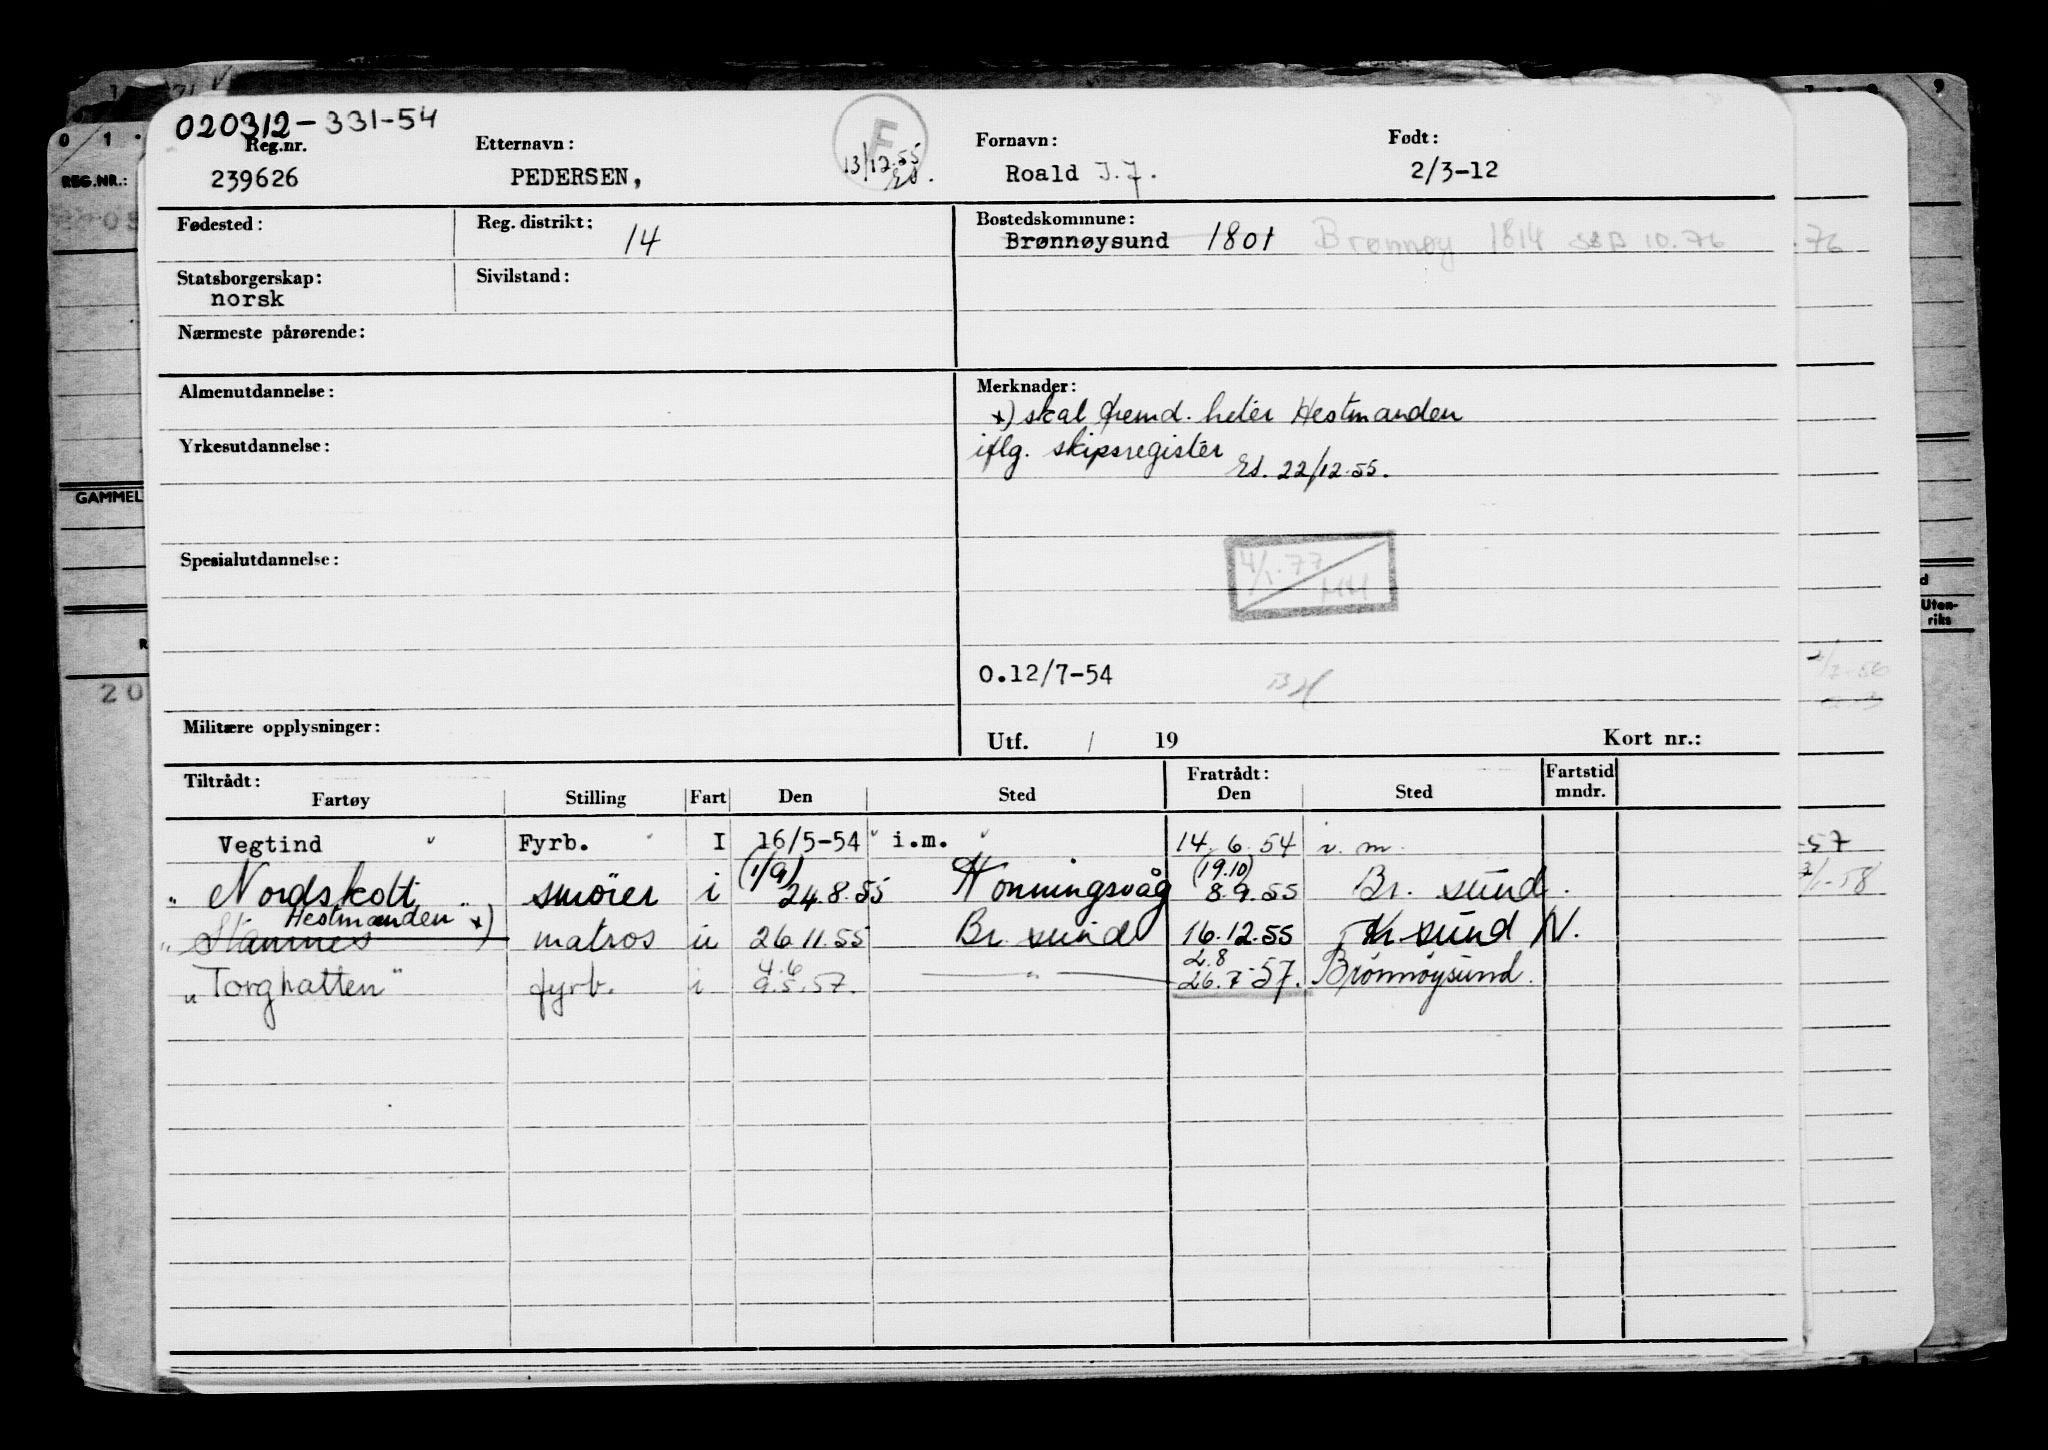 020312-331-54
Reg.nr. Etternavn: Fornavn: Født:
239626 PEDERSEN, 13/12.55 Es. F Roald J.F. 2/3-12
REG.NR.:
Fødested: Reg. distrikt: 14 Bostedskommune:
Brønnøysund 1801 Brønnøy 1814 SSB 10.76 .76
Statsborgerskap: Sivilstand:
norsk
Nærmeste pårørende:
Almenutdannelse: Merknader:
*) skal fremd. heter Hestmanden
Yrkesutdannelse: iflg. skipsregister
Es. 22/12.55.
GAMMEL
Spesialutdannelse: 4/1.77
Uten-
riks
O.12/7-54
20
Militære opplysninger: Utf. / 19 Kort nr.:
Tiltrådt: Fratrådt: Fartstid
Fartøy Stilling Fart Den Sted Den Sted mndr.
Vegtind " Fyrb. " I 16/5-54 " i.m. " 14.6.54 i.m. -57
(1/9) (19.10)
" Nordskott " smører i 24.8.55 Honningsvåg 8.9.55 Br. sund. -58
Hestmanden *)
" Stamnes matros u 26.11.55 Br. sund 16.12.55 Kr. sund N.
4.6 2.8
" Torghatten " fyrb. i 9.5.57. — " — 26.7-57. Brønnøysund.